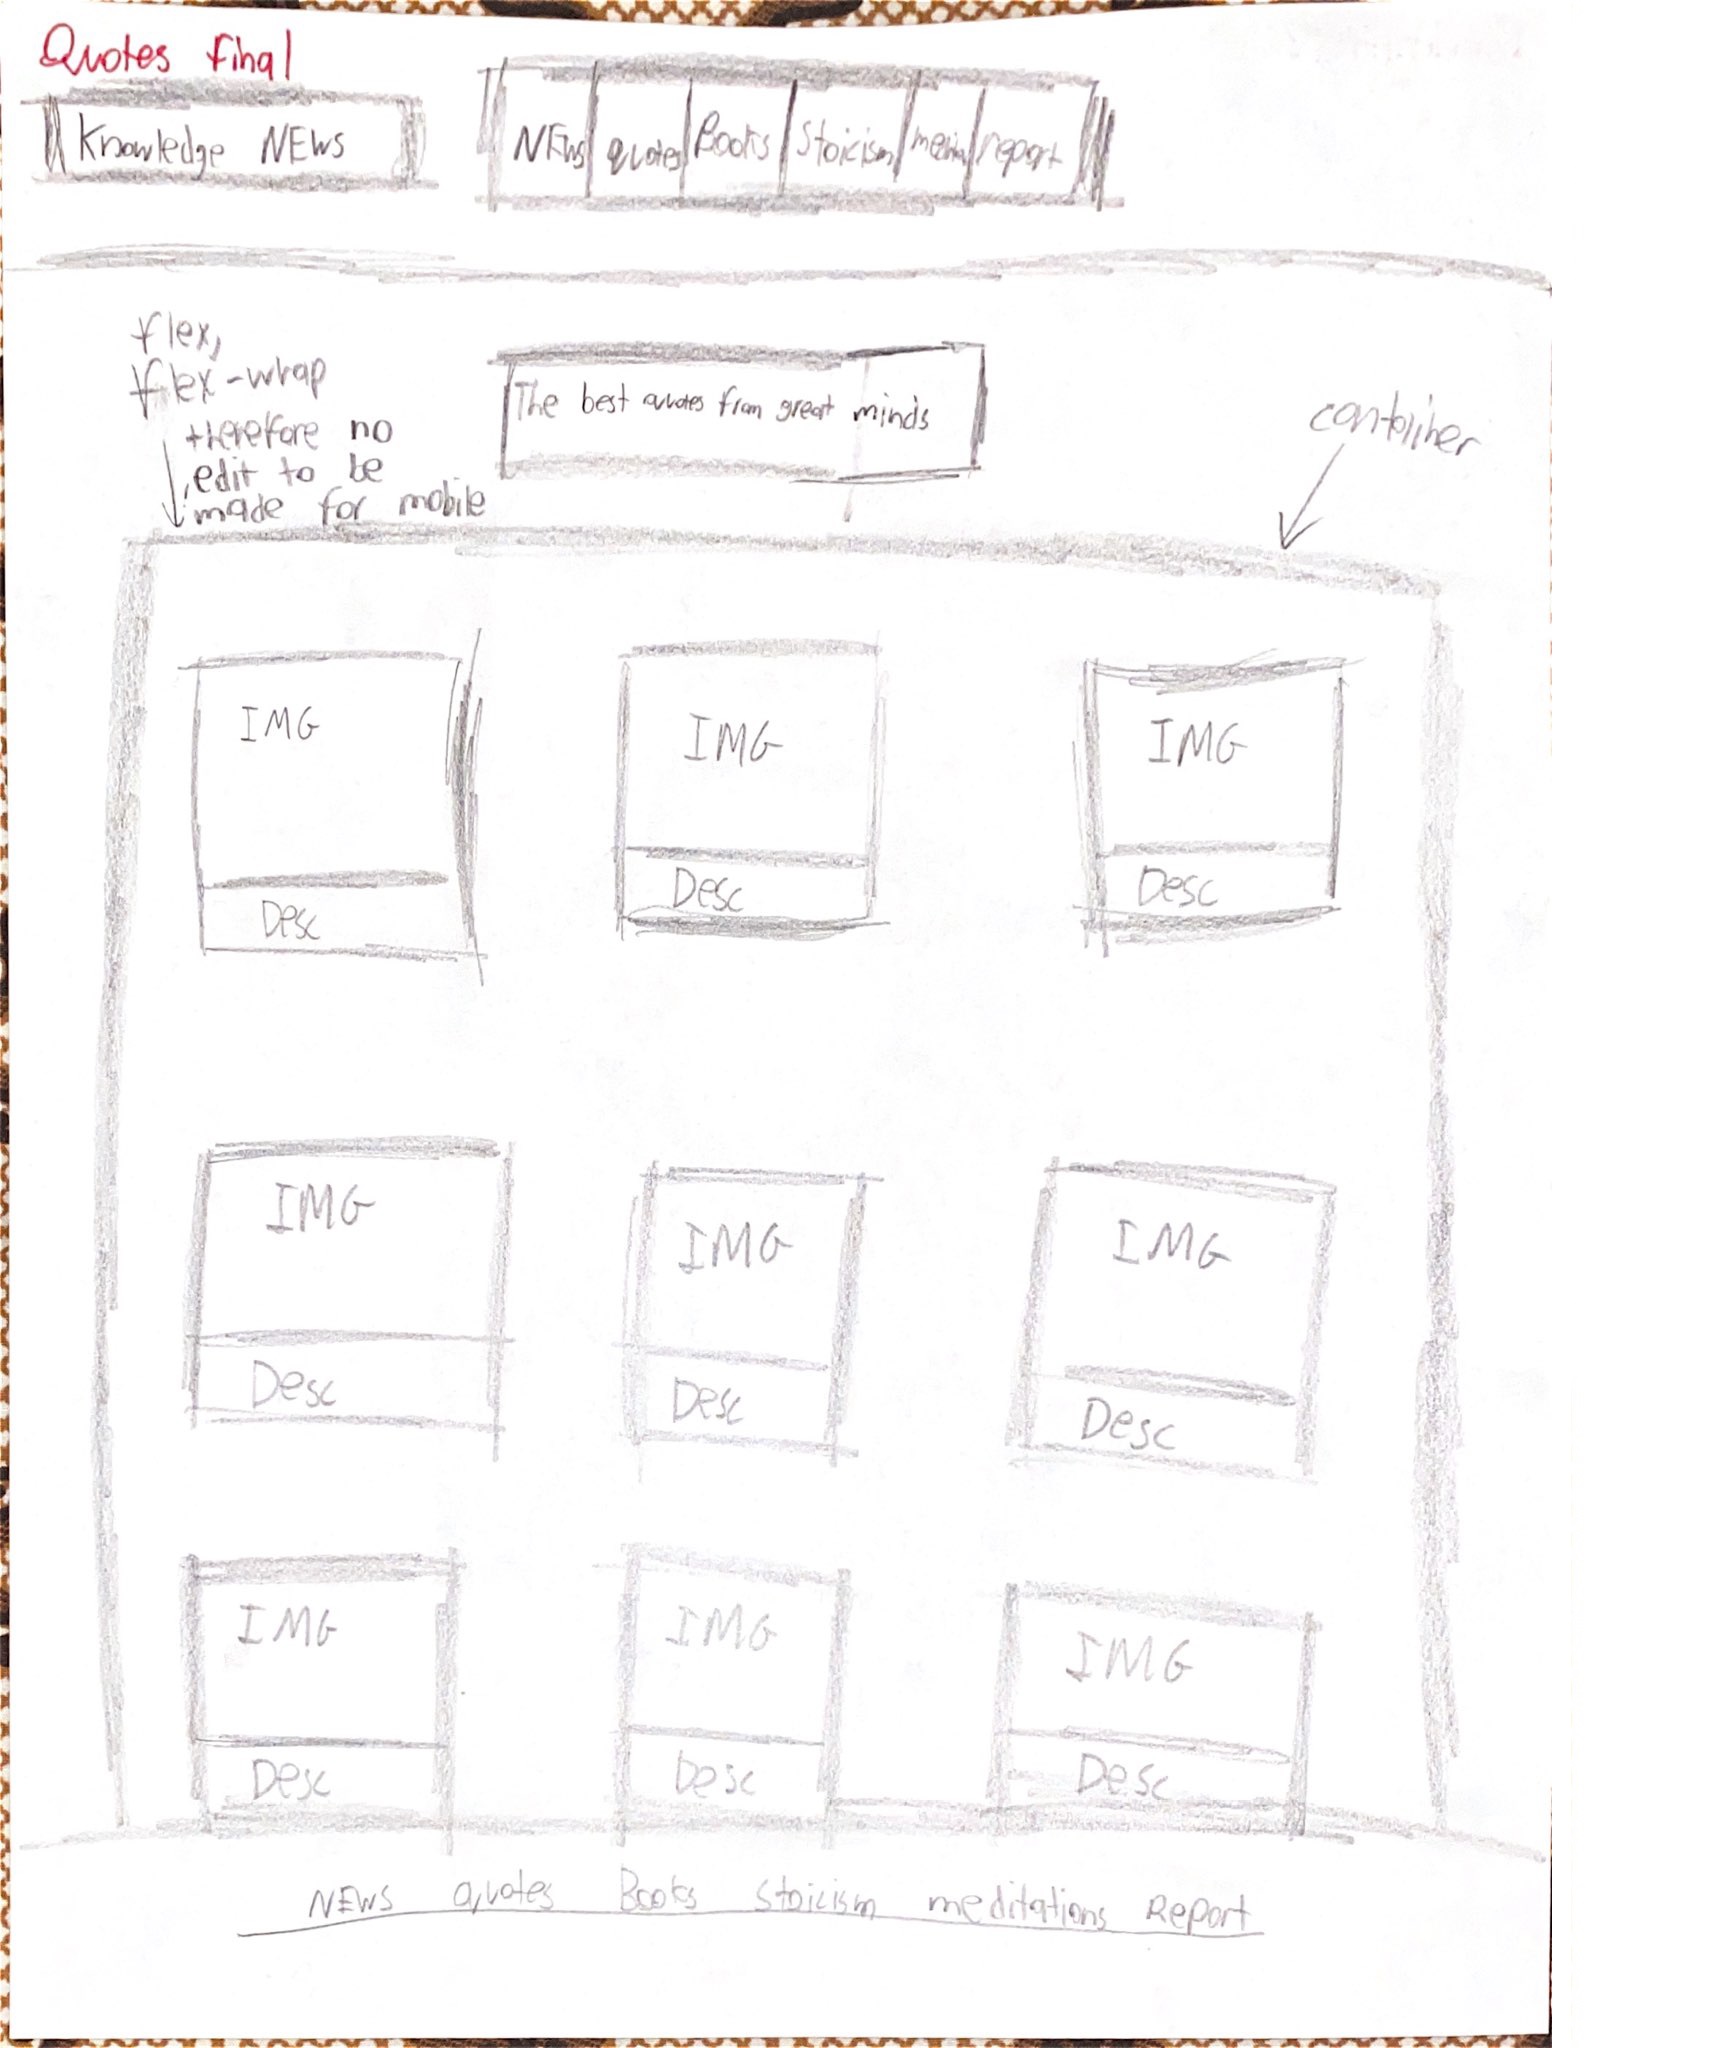 Quotes final
Knowledge NEWS
NEWS quotes Books Stoicism report
flex,
flex-wrap
therefore no
edit to be
made for mobile
The best quotes from great minds
container
IMG IMG IMG
Desc Desc Desc
IMG IMG IMG
Desc Desc Desc
IMG IMG IMG
Desc Desc Desc
NEWS Quotes Books Stoicism meditations Report